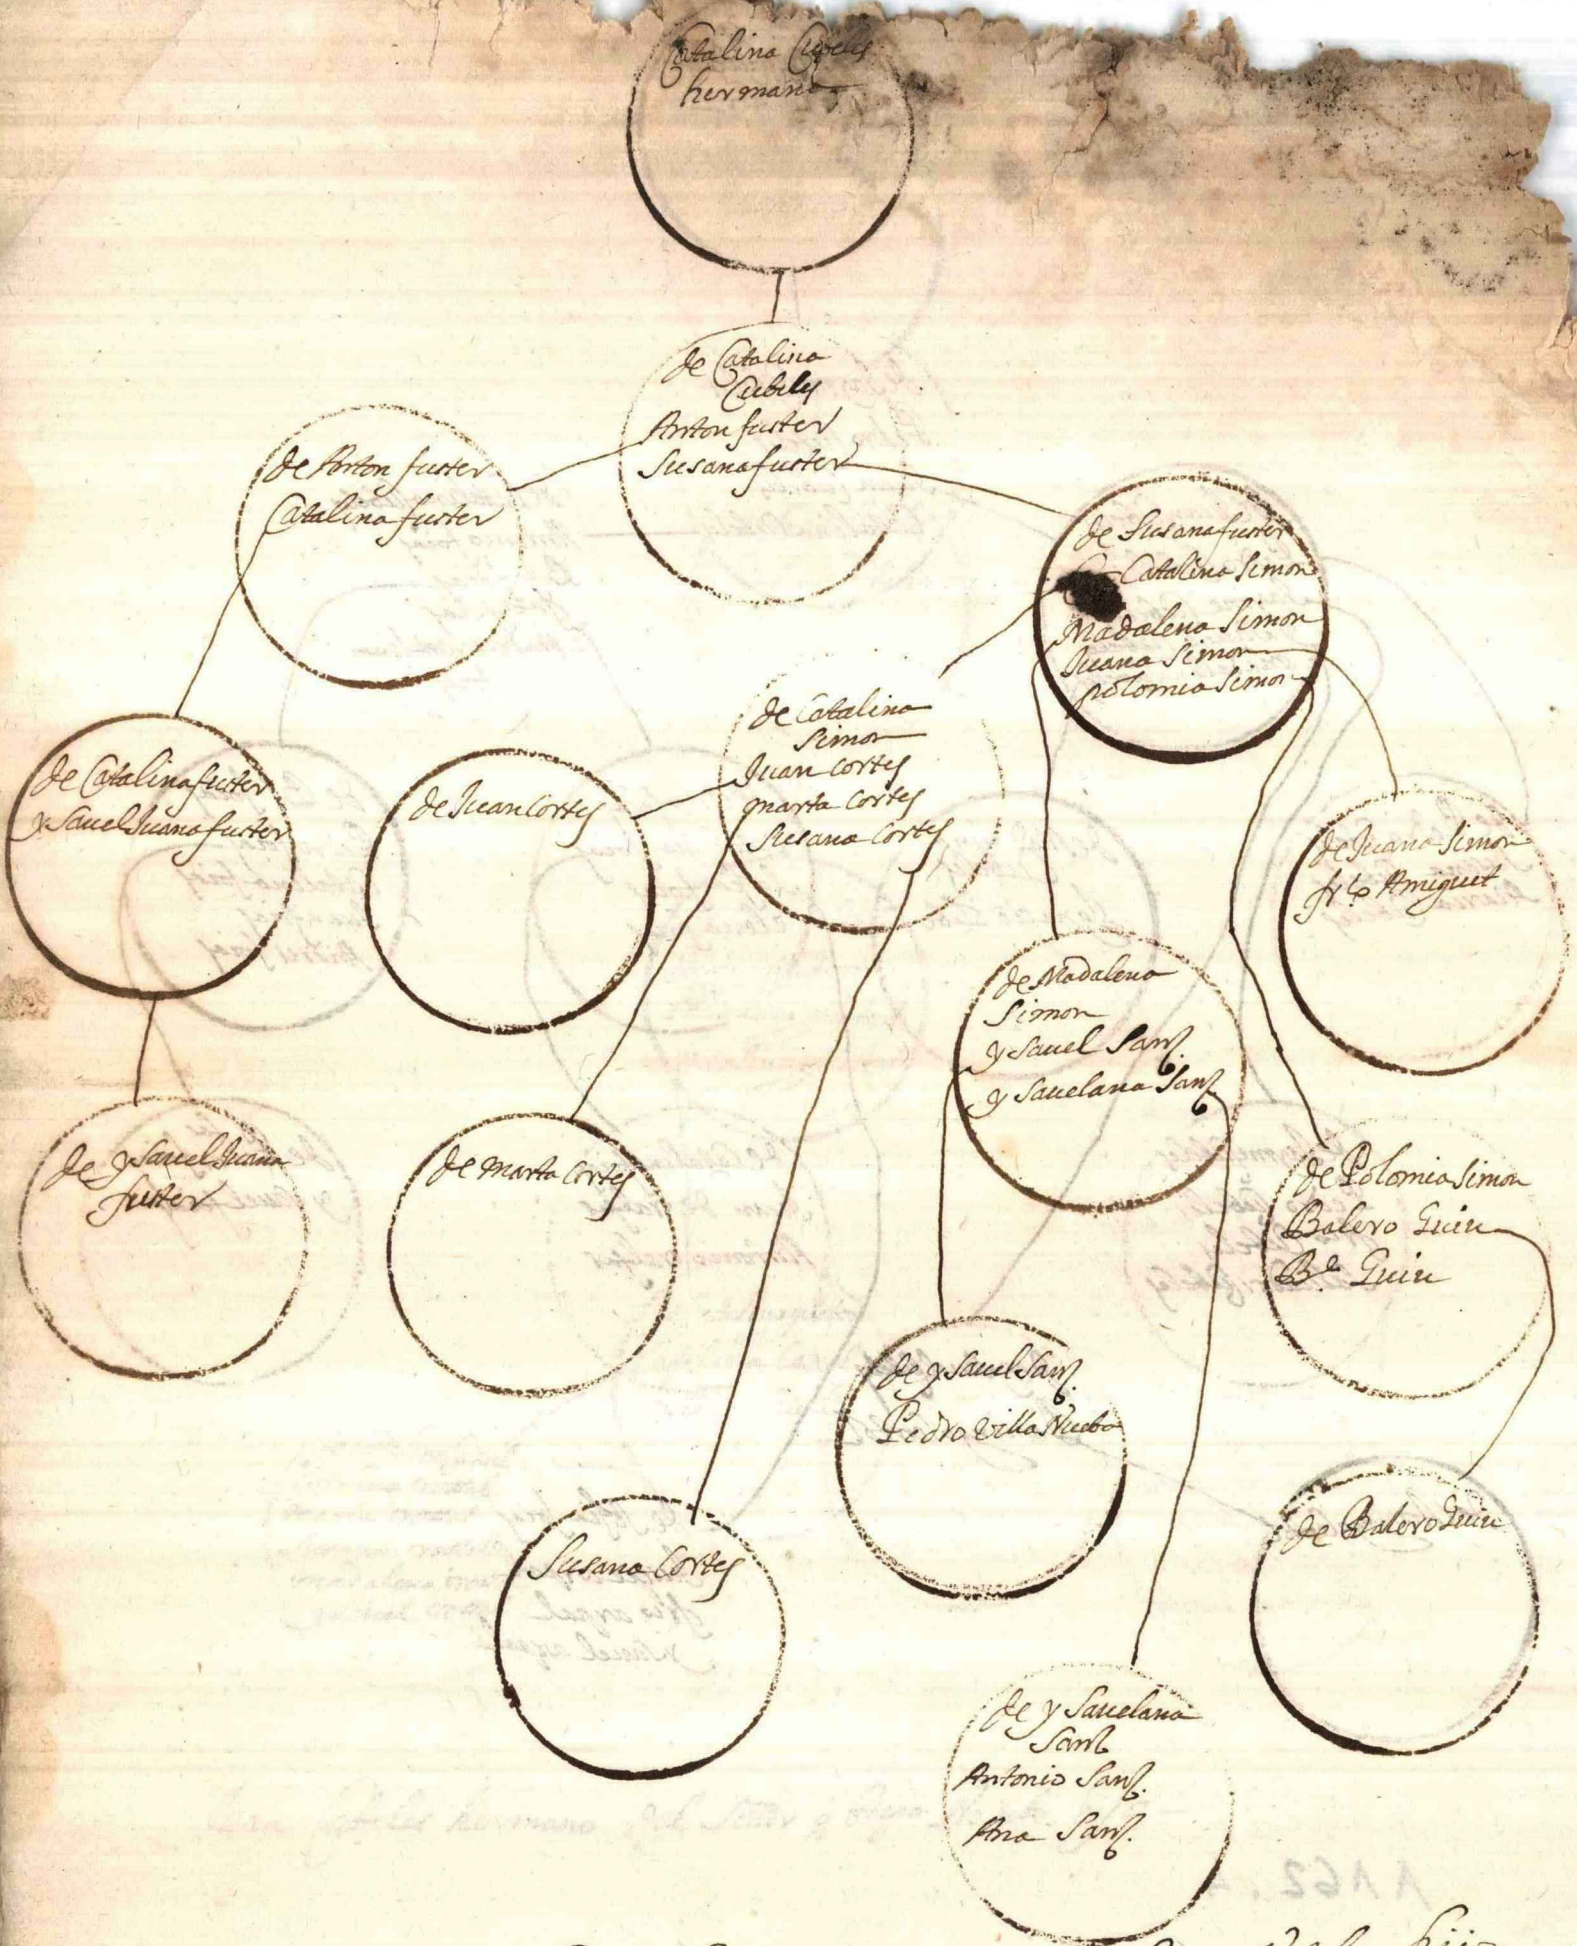 Catalina Cubeles
hermana
de Catalina
Cubeles
Anton fuster
Susana fuster
de Anton fuster
Catalina fuster
de Susana fuster
Catalina Simon
Madalena Simon
Juana Simon
polomia Simon
de Catalina
Simon
Juan Cortes
marta Cortes
Susana Cortes
de Catalina fuster
ysauel Juana fuster
de Juan Cortes
de Juana Simon
Amiguet
de Madalena
Simon
ysauel Sanz
ysauelana Sanz
de ysauel Juana
fuster
de marta Cortes
de Polomia Simon
Balero Guiu
Guiu
de ysauel Sanz
Pedro Villa Nueba
Susana Cortes
de Balero Guiu
de ysauelana
Sanz
Antonio Sanz
Ana Sanz